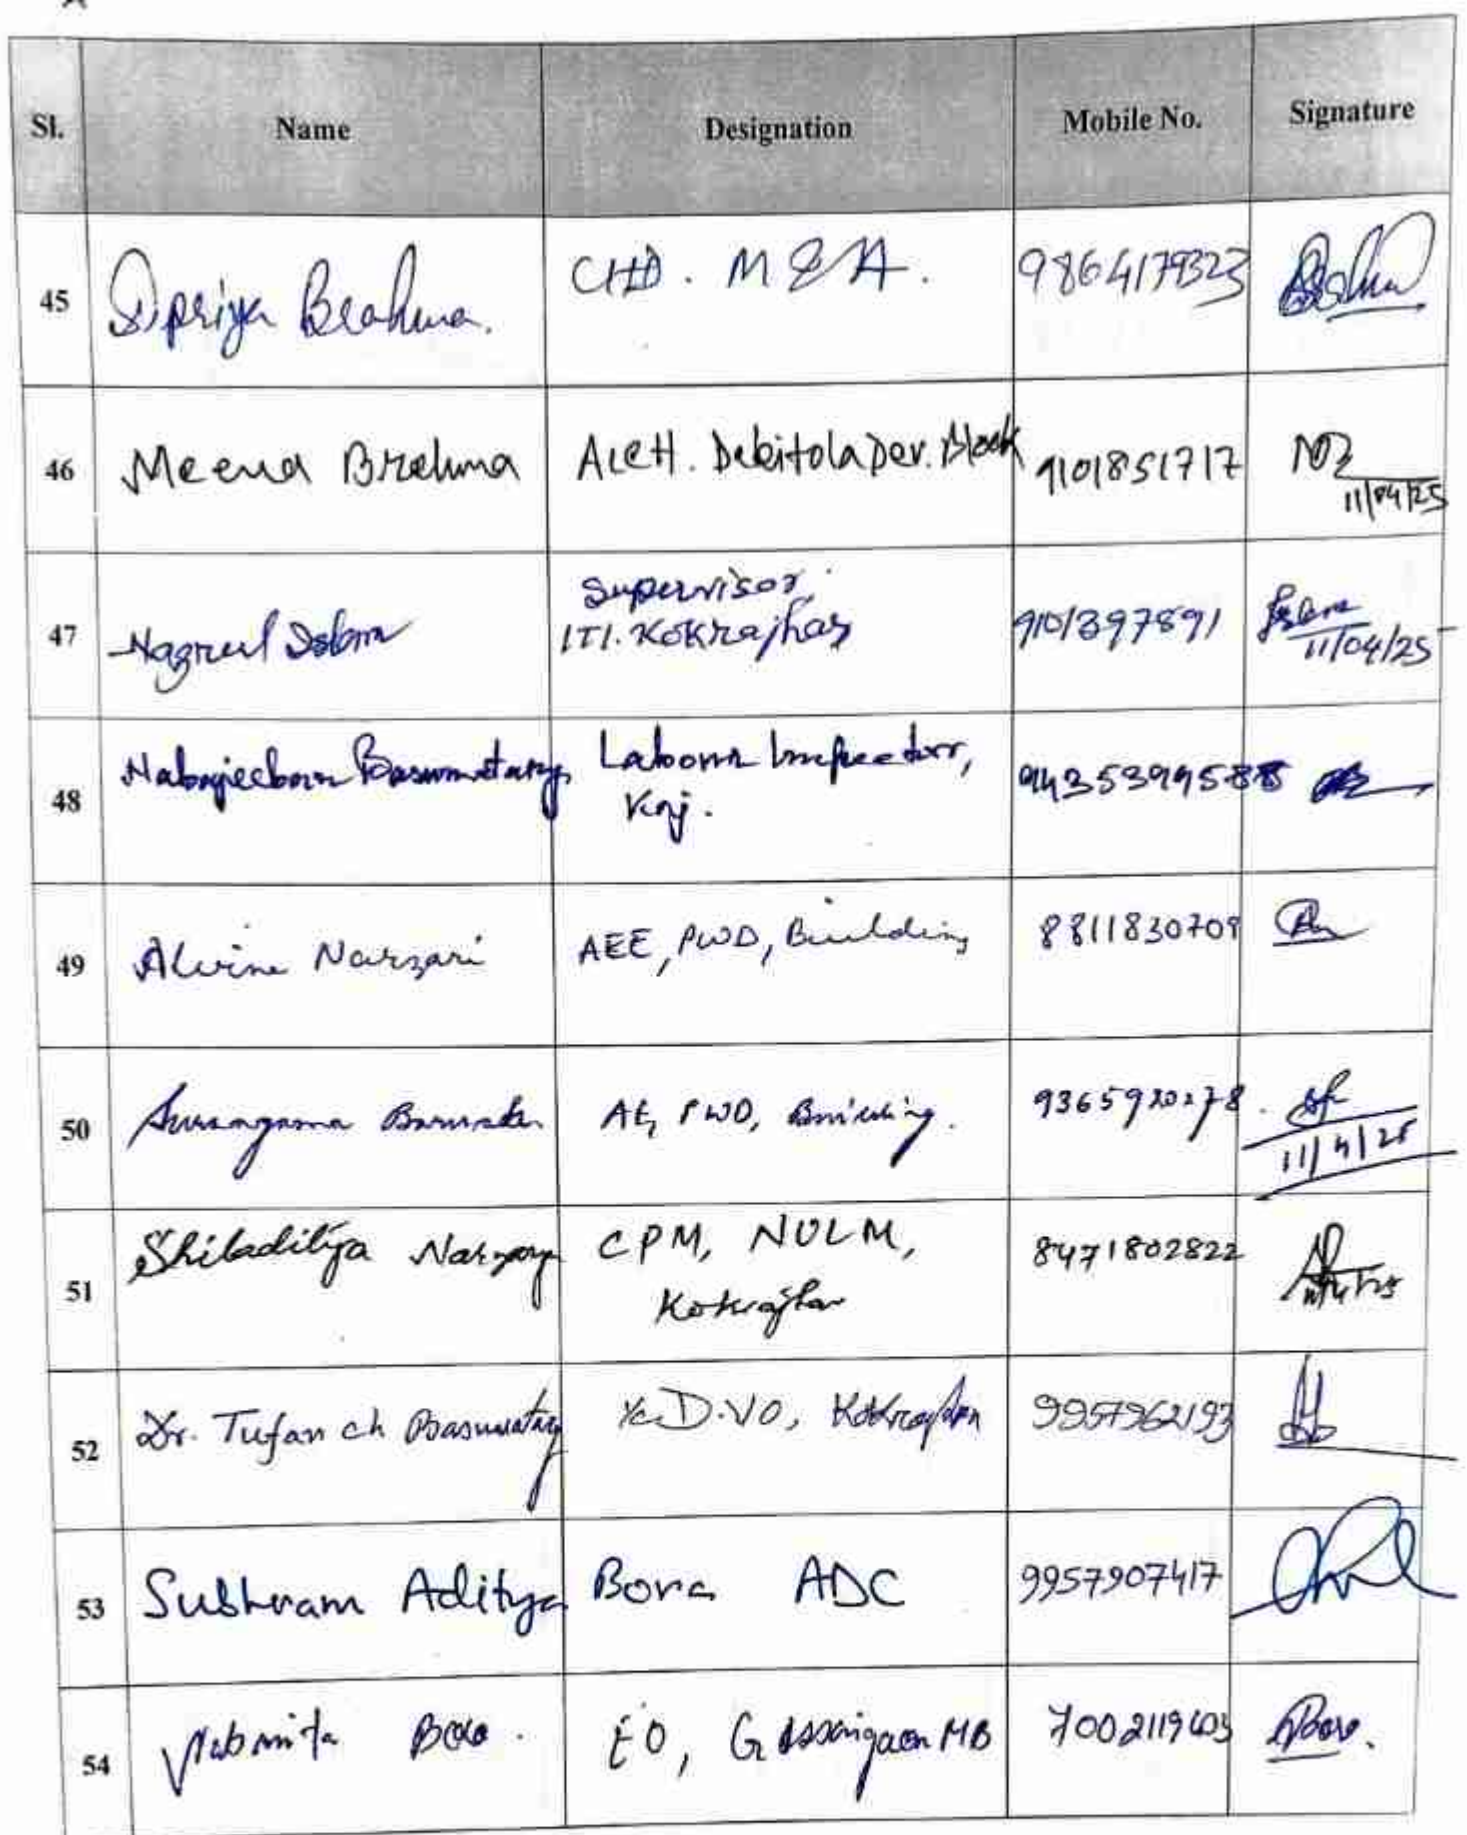 Sl. Name Designation Mobile No. Signature
45 Dipriya Brahma. CHD. M&A. 9864179323
46 Meena Brahma ALCH. Debitola Dev. Block 9101851717 11/04/25
47 Nazrul Islam Supervisor,
ITI. Kokrajhar 9101397891 11/04/25
48 Nabajeeban Basumatary Labour Inspector,
Kaj. 
49 Alvine Narzari AEE, PWD, Building 8811830709
50 AE, PWD, Building. 11/4/25
51 Shiladitya Narzary CPM, NULM,
Kokrajhar 8471802822
52 Dr. Tufan ch Basumatary D.VO, Kokrajhar 9957962193
53 Subhram Aditya Bora ADC 9957907417
54 Nabmita Boro. EO, Gossaigaon MB Boro.